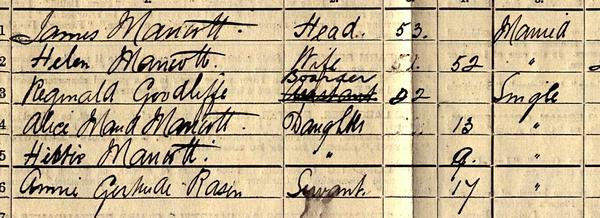 1 James Marriott. Head. 53. Married
2 Helen Marriott. Wife 52 "
3 Reginald Goodliffe Boarder Assistant 22 Single
4 Alice Maud Marriott. Daughter 13 "
5 Marriott. " 9. "
6 Annie Gertrude Rasen Servant 17 "